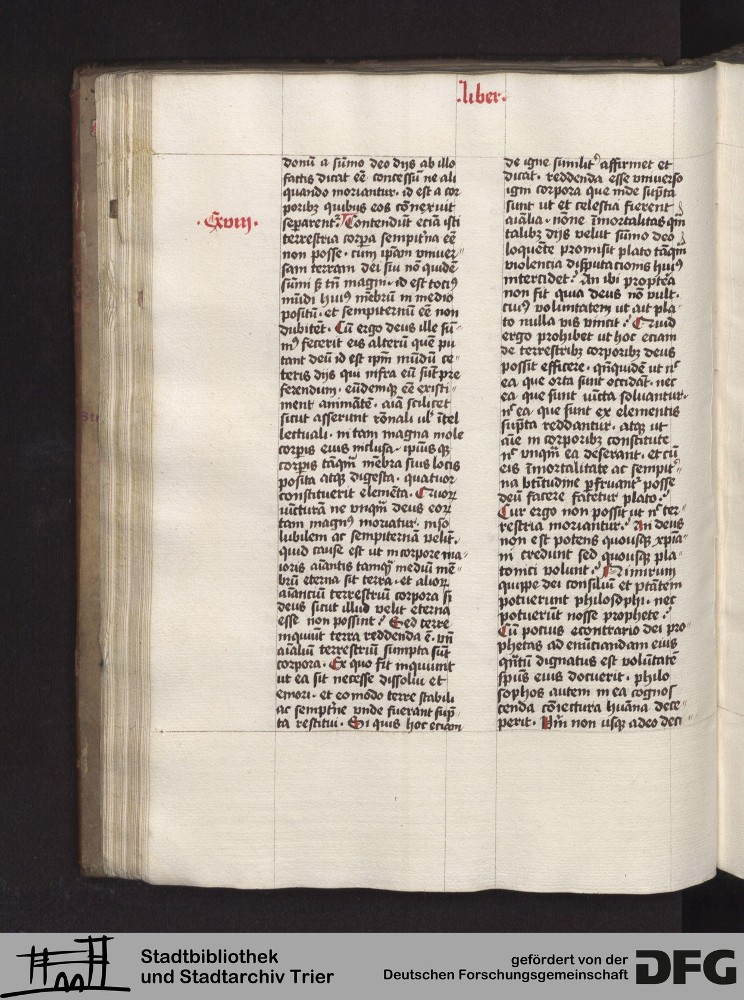 ·liber·
·Cxviij·
donū a sūmo deo dijs ab illo
factis dicat eē concessū ne ali
quando moriantur· id est a cor
poribꝫ quibus eos cōnexuit
separent᷑· Contendūt eciā isti
terrestria corpa sempit̄na eē
non posse· cum ipām vniuer
sam terram dei siu nō quidē
sūmi sꝫ tn̄ magni· id est tociꝰ
mūdi huiꝰ mēbrū in medio
positū· et sempiternū eē non
dubitēt· Cū ergo deus ille sū
mꝰ fecerit eis alterū quē pu
tant deū id est ip̄m mūdū ce
teris dijs qui infra eū sūt pre
ferendum· eūdemqꝫ eē existi
ment animātē· aīa scilicet
sicut asserunt rōnali ul' ītel
lectuali· in tam magna mole
corpis eius inclusa· ipsiusqꝫ
corpis tāqm̄ mēbra suis locis
posita atqꝫ digesta· quatuor
constituerit elemēta· Quoꝝ
iūcturā ne vnqm̄ deus eoꝝ
tam magnꝰ moriatur· inso
lubilem ac sempiternā velit·
quid cause est ut in corpore ma
ioris aīantis tamqꝫ mediū mē
brū eterna sit terra· et alioꝝ
aīanciū terrestriū corpora si
deus sicut illud velit eterna
esse non possint· Sed terre
inquiūt terra reddenda ē· vn̄
aīaliū terrestriū sumpta sūt
corpora· Ex quo fit inquiunt
ut ea sit necesse dissolui et
emori· et eo modo terre stabili
ac sempit̄ne vnde fuerant sūp
ta restitui· Si quis hoc eciam
de igne similit᷑ affirmet et
dicat· reddenda esse vniuerso
igni corpora que inde sūpta
sunt ut et celestia fierent
aīalia· nōne īmortalitas qm̄
talibꝫ dijs velut sūmo deo
loquēte promisit plato tāqm̄
violencia disputacionis huiꝰ
intercidet· An ibi propterea
non fit quia deus nō vult·
cuiꝰ voluntatem ut ait pla
to nulla vis vincit· Quid
ergo prohibet ut hoc eciam
de terrestribꝫ corporibꝫ deus
possit efficere· qn̄quidē ut nec
ea que orta sunt occidāt· nec
ea que sunt iūcta soluantur·
nec ea que sunt ex elementis
sūpta reddantur· atqꝫ ut
aīe in corporibꝫ constitute
nec vnqm̄ ea deserant· et cū
eis īmortalitate ac sempit᷑
na btītudine pfruant᷑ posse
deū facere fatetur plato·
Cur ergo non possit ut nec ter
restria moriantur· An deus
non est potens quousqꝫ xpīa
ni credunt sed quousqꝫ pla
tonici volunt· Nimirum
quippe dei consiliū et ptātem
potuerunt philosophi· nec
potuerūt nosse prophete·
Cū potius econtrario dei pro
phetas ad enūciandam eius
qm̄tū dignatus est volūtatē
spūs eius docuerit· philo
sophos autem in ea cognos
cenda cōiectura hūana dece
perit· Vm̄ non usqꝫ adeo deci
Stadtbibliothek
und Stadtarchiv Trier
gefördert von der
Deutschen Forschungsgemeinschaft
DFG